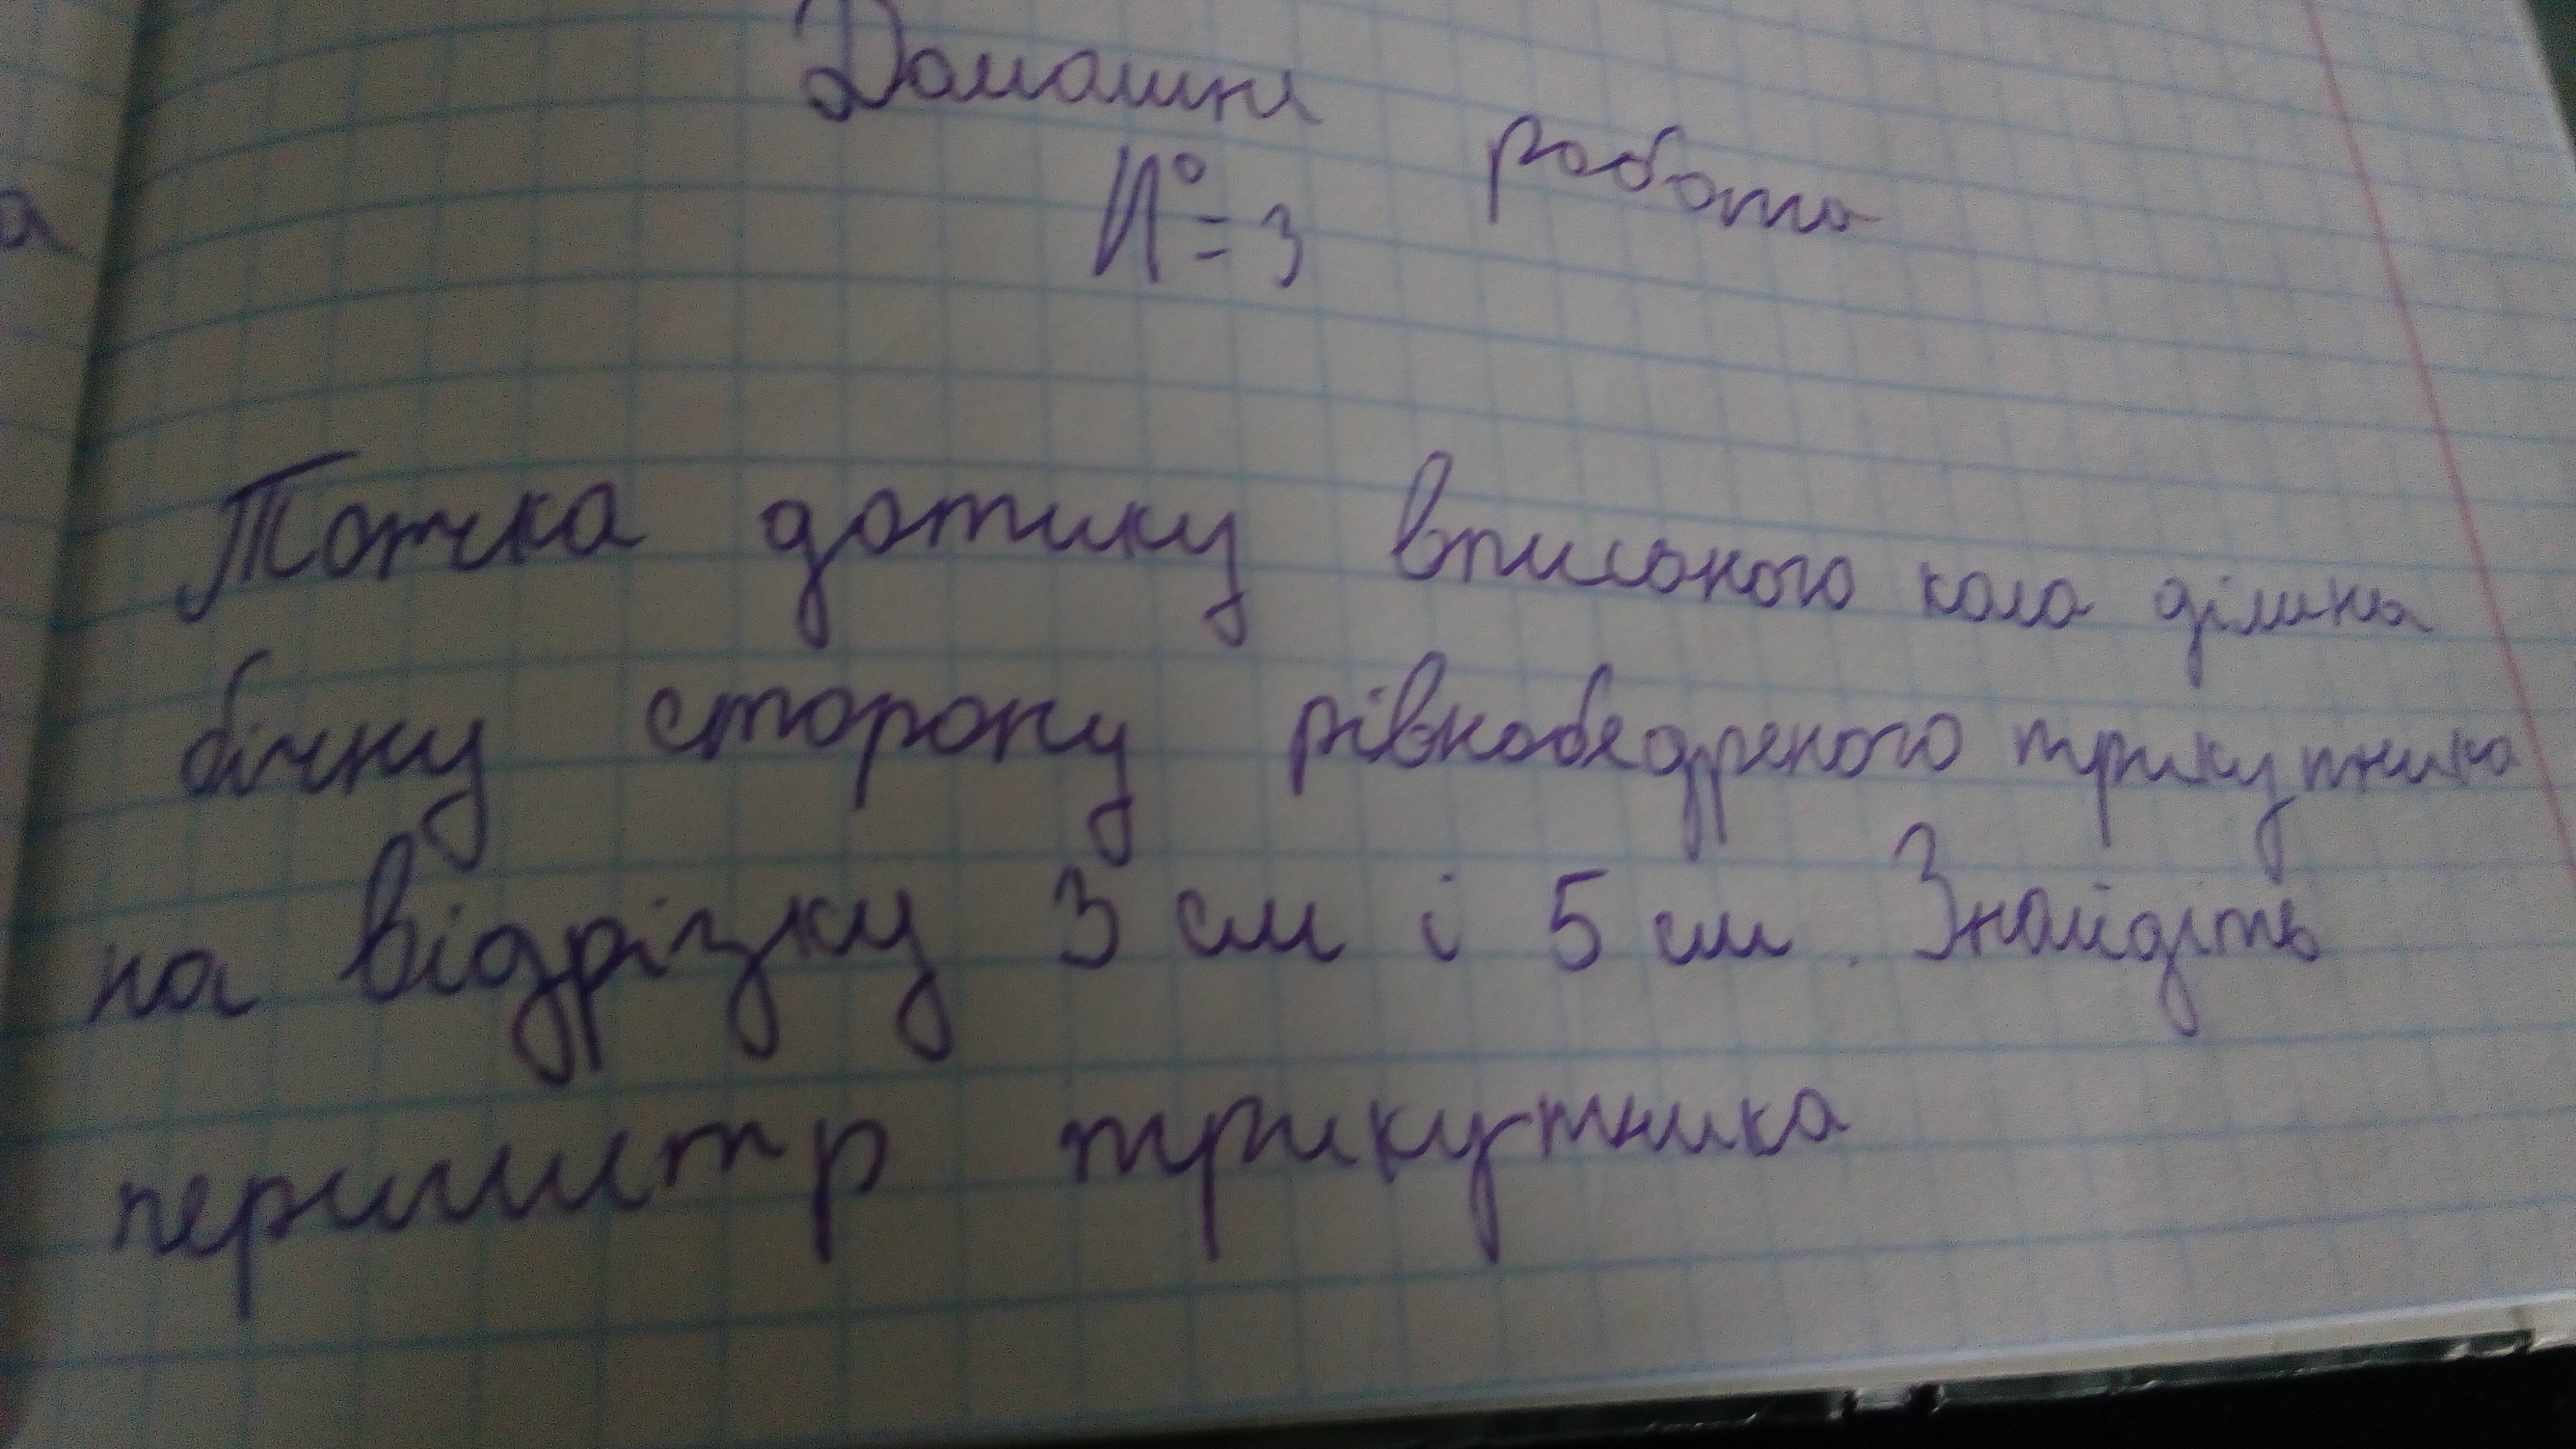 Домашня робота
№ = 3
Точка дотику вписаного кола ділина
бічну сторону рівнобедреного трикутника
на відрізку 3 см і 5 см. Знайдіть
периметр трикутника
а